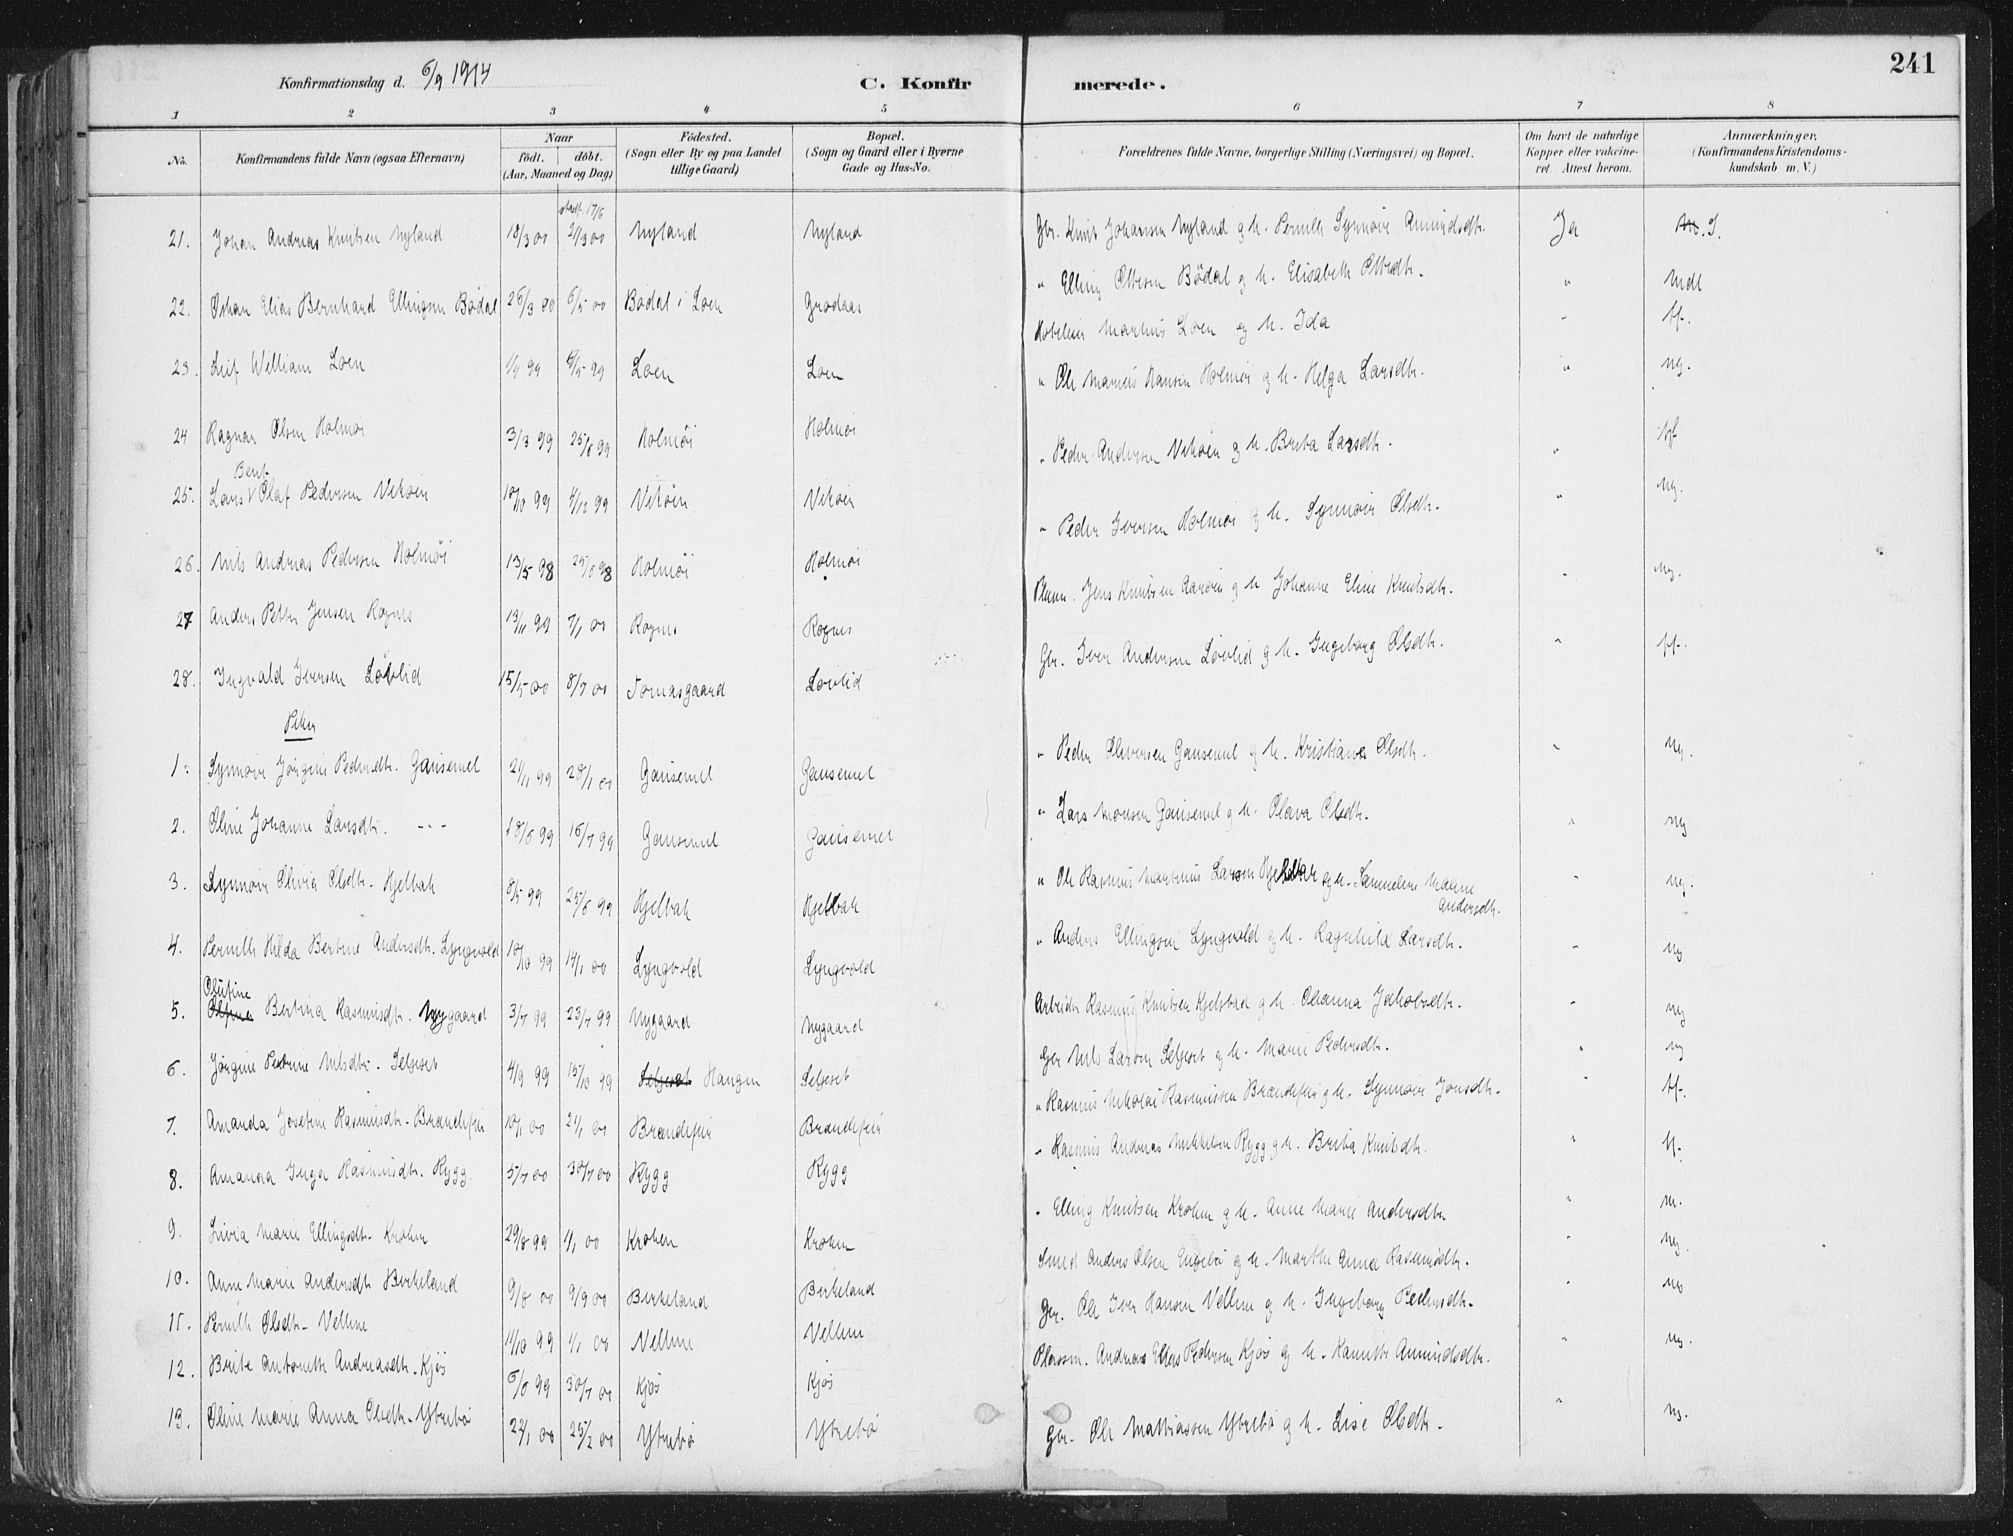 241
Konfirmationsdag d. 6/9 1914 C. Konfirmerede.
1 2 3 4 5 6 7 8
No. Konfirmandens fulde Navn (ogsaa Efternavn) Naar födt. döbt. (Aar, Maaned og Dag) Födested. (Sogn eller By og paa Landet tillige Gaard) Bopæl. (Sogn og Gaard eller i Byerne Gade og Hus-No. Forældrenes fulde Navne, borgerlige Stilling (Næringsvei) og Bopæl. Om havt de naturlige Kopper eller vakcineret. Attest herom. Anmærkninger. (Konfirmandens Kristendomskundskab m. V.)
17/6
21. Johan Andreas Knutsen Nyland 18/3 00 Nyland Nyland Gbr. Knut Johansen Nyland g h. Pernille Synnöve Amundsdtr. Ja
22. Oskar Elias Bernhard Ellingsen Bödal 26/3 00 6/5 00 Bödal i Loen Grodaas " Elling Ottesen Bödal g h. Elisabeth Ottesdtr. " Mdt
23. Leif William Loen 1/4 99 99 Loen Loen Markus Loen og h. Ida " tf.
24 Ragnar Olsen Holmöi 3/3 99 25/6 99 Holmöi Holmöi " Ole Marius Hansen Holmöi g h. Helga Larsdtr. " ng.
Bent
25. Lars Olaf Pedersen Viköien 10/10 99 4/12 99 Viköin Viköin " Peder Andersen Viköin g h. Brita Larsdtr. " tf
26. Nils Andreas Pedersen Holmöi 13/5 98 98 Holmöi Holmöi " Peder Iversen Holmöi g h. Synnöve Olsdtr. " ng.
27 Anders Peter Jensen Rognes 13/11 99 7/1 00 Rognes Rognes Jens Knutsen g h Johanne Eline Knutsdtr. " ng.
28. Ingvald Iversen Lövlid 15/5 00 8/7 00 Tomasgaard Lövlid Gbr. Iver Andersen Lövlid g h. Ingeborg Olsdtr. " tf.
Piker
1. Synnöve Jörgine Pedersdtr. Gausemel 21/11 99 28/1 00 Gausemel Gausemel " Peder Gausemel g h. Kristiane Olsdtr. " ng.
2. Oline Johanne Larsdtr. --- 18/6 99 16/7 99 Gausemel Gausemel " Lars Monsen Gausemel g h. Olava Olsdtr. " ng
3. Synnöve Olivia Olsdtr. Hjelbak 8/5 99 25/6 99 Hjelbak Hjelbak " Ole Rasmus Martinus Larsen g h. Samueline Malene Andersdtr. " ng.
4. Pernille Hilda Bertine Andersdtr. Lyngvold 10/10 99 14/1 00 Lyngvold Lyngvold " Anders Ellingsen Lyngvold g h. Ragnhild Larsdtr. " ng
Olufine
5. Bertina Rasmusdtr. Nygaard 3/7 99 23/7 99 Nygaard Nygaard Arbeider Rasmus Knutsen Hjelstad g h. Johanna Jakobsdtr. " ng
6. Jörgine Petrine Nilsdtr. Seljeset 4/9 99 15/10 99 Seljeset Haugen Seljeset Gbr Nils Larsen Seljeset g h. Marie Pedersdtr. " ng
7. Amanda Josefine Rasmusdtr. Brændefjeir 10/1 00 21/1 00 Brændefjeir Brændefjeir " Rasmus Nikolai Rasmussen Brændefjeir g h. Synnöve Jonsdtr. " tf.
8. Amanda Inga Rasmusdtr. Rygg 5/7 00 30/7 00 Rygg Rygg " Rasmus Andreas Mikkelsen Rygg g h. Brita Knutsdtr. " tf.
9. Livia Marie Ellingsdtr. Kroken 29/8 99 1/1 00 Kroken Kroken " Elling Knutsen Kroken g h. Anne Marie Andersdtr " m.
10. Anne Marie Andersdtr Birkeland 9/8 00 9/9 00 Birkeland Birkeland Smed Anders Olsen Engebö g h. Marthe Anna Rasmusdtr. " ng.
11. Pernille Olsdtr. Vellene 11/10 99 1/1 00 Vellene Vellene Gbr. Ole Iver Hansen Vellene g h. Ingeborg Pedersdtr. " ng
12. Brite Antonette Andreasdtr. Kjös 6/6 99 30/7 Kjös Kjös Plassm. Andreas Elias Pedersen Kjös g h. Amundsdtr. " ng.
13. Oline Marie Anna Olsdtr. Ytrebö 22/1 00 25/2 00 Ytrebö Ytrebö Gbr. Ole Mathiassen Ytrebö g h. Lise Olsdtr. " ng.